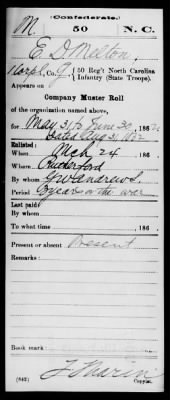 (Confederate.)
M. 50 N. C.
E. D. Melton
Corpl, Co. G, 50 Reg't North Carolina
Infantry (State Troops).
Appears on
Company Muster Roll
of the organization named above,
for May 31, to June 30, 1862
dated Aug 31, 1862
Enlisted:
When Mch 24, 186
Where Rutherford
By whom G W Andrews
Period 3 years or the war
Last paid:
By whom
To what time , 186 .
Present or absent Present
Remarks:
Book mark:
(642) Copyist.